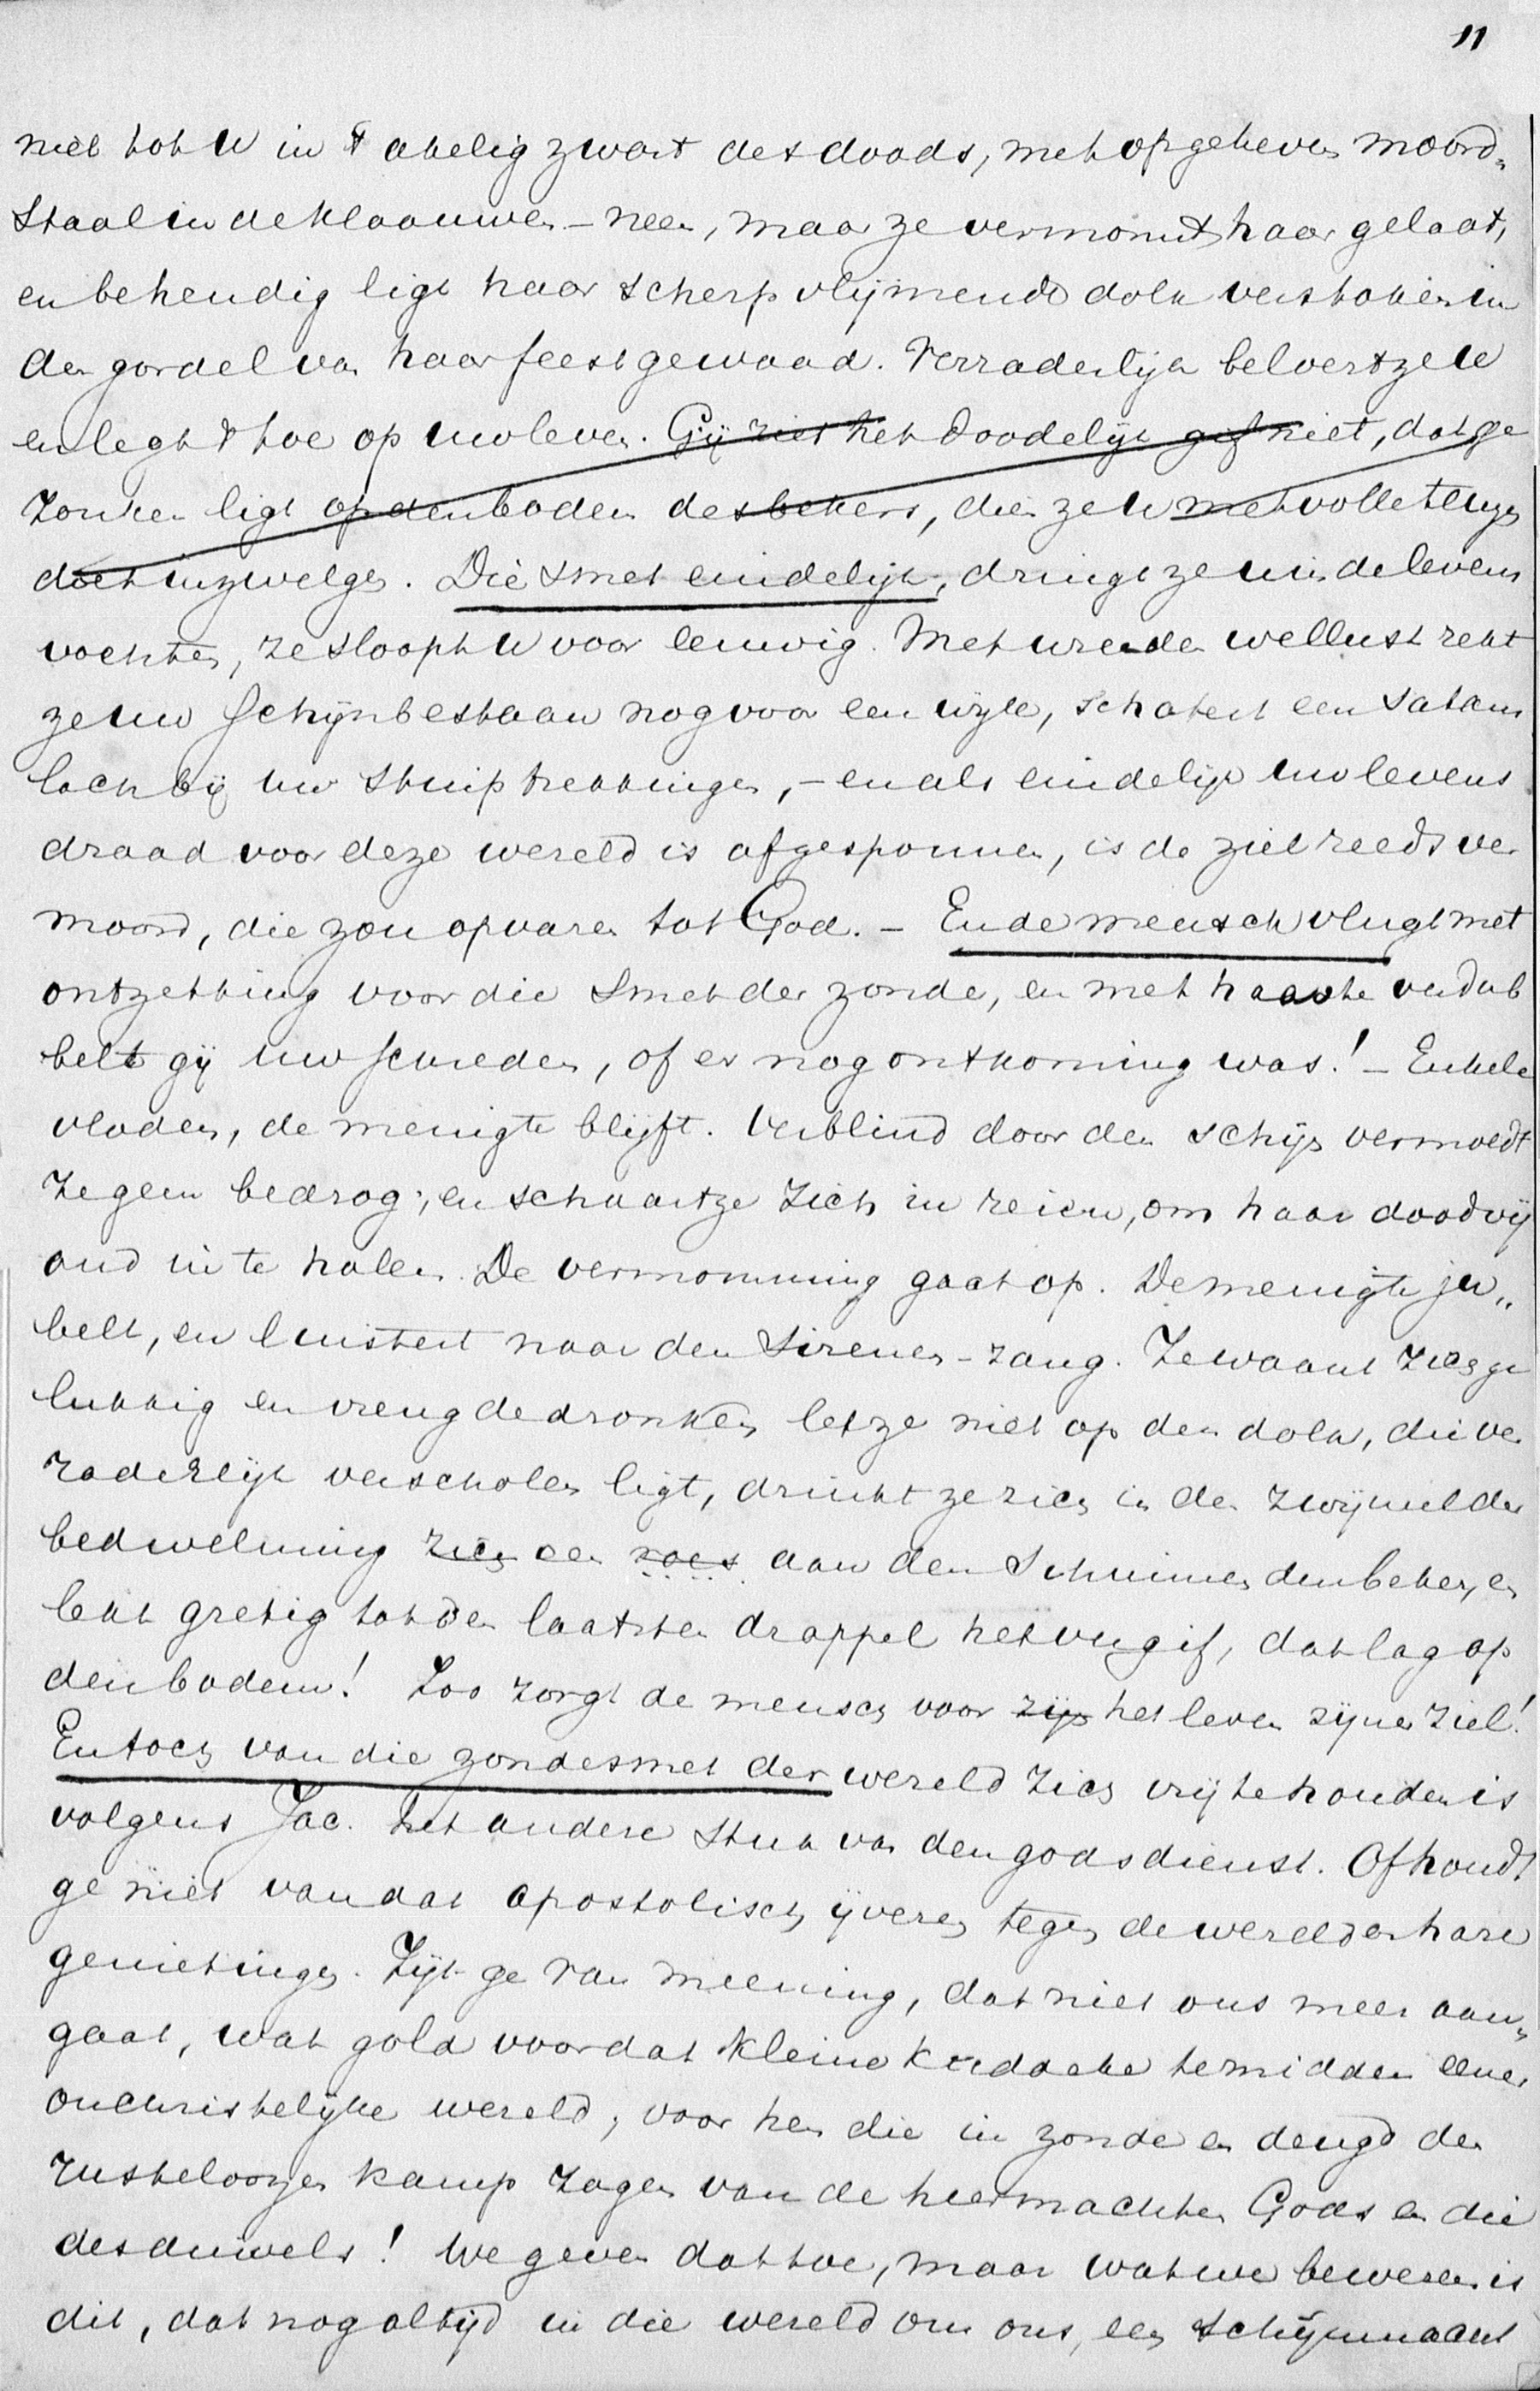 11
niet tot u in 't akelig zwart des doods, met opgeheven moord„
staal in de klaauwen – neen, maar ze vermomt haar gelaat,
en behendig ligt haar scherp vlijmende dolk verstoken in
den gordel van haar feestgewaad. Verraderlijk beloert ze u
en legt 't toe op uw leven. Gij ziet het doodelijk gif niet, dat ge
zonken ligt op den bodem des bekers, dien ze u met volle teugen
doet inzwelgen. Die smet eindelijk, dringt ze u in de levens
vochten, ze sloopt u voor eeuwig. Met wreeden wellust rekt
ze uw schijnbestaan nog voor een wijle, schatert een satans
lach bij uw stuiptrekkingen, – en als eindelijk uw levens
draad voor deze wereld is afgesponnen, is de ziel reeds ver
moord, die zou opvaren tot God. – En de mensch vlugt met
ontzetting voor die smet der zonde, en met haaste verdub
belt gij uw schreden, of er nog ontkoming was! – Enkele
vloden, de menigte blijft. Verblind door den schijn vermoedt
ze geen bedrog, en schaart ze zich in reien, om haar doodvij
and in te halen. De vermomming gaat op. De menigte ju„
belt, en luistert naar den Sirenen-zang. Ze waant zich ge
lukkig en vreugdedronken let ze niet op den dolk, die ver
raderlijk verscholen ligt, drinkt ze zich in den zwijmel der
bedwelming zich een roes aan den schuimenden beker, en
lekt gretig tot den laatsten droppel het vergif, dat lag op
den bodem! Zoo zorgt de mensch voor zijn het leven zijner ziel!
En toch van die zondesmet der wereld zich vrij te houden is
volgens Jac. het andere stuk van den godsdienst. Of houdt
ge niet van dat apostolisch ijveren tegen de wereld en hare
genietingen. Zijt ge van meening, dat niet ons meer aan„
gaat, wat gold voor dat kleine kuddeke te midden eener
onchristelijke wereld, voor hen die in zonde en deugd den
rusteloozen kamp zagen van de heermachten Gods en die
des duivels! We geven dat toe, maar wat we beweren is
dit, dat nog altijd in die wereld om ons, een schijnmacht